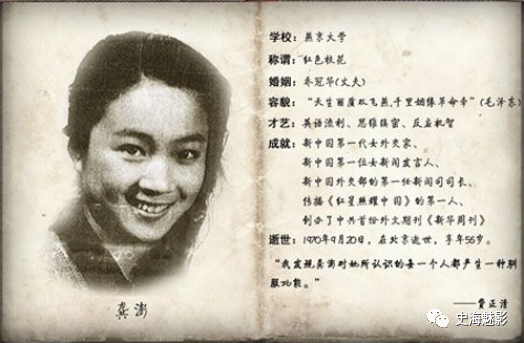 龚澎
学校：燕京大学
称谓：红色校花
婚姻：乔冠华(丈夫)
容貌："天生丽质双飞燕,千里姻缘革命牵"(毛泽东)
才艺：英语流利、思维缜密、反应机智
成就：新中国第一代女外交家、
新中国第一位女新闻发言人、
新中国外交部的第一任新闻司司长、
传播《红星照耀中国》的第一人、
创办了中共首份外文期刊《新华周刊》
逝世：1970年9月20日，在北京逝世，享年56岁。
"我发现龚澎对她所认识的每一个人都产生一种驯
服功能。"
——费正清
史海魅影